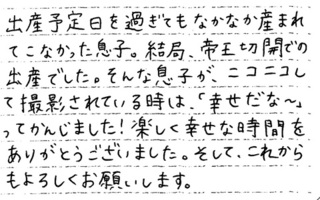 出産予定日を過ぎてもなかなか産まれ
てこなかった息子。結局、帝王切開での
出産でした。そんな息子が、ニコニコし
て撮影されている時は、「幸せだな～」
ってかんじました！楽しく幸せな時間を
ありがとうございました。そして、これから
もよろしくお願いします。